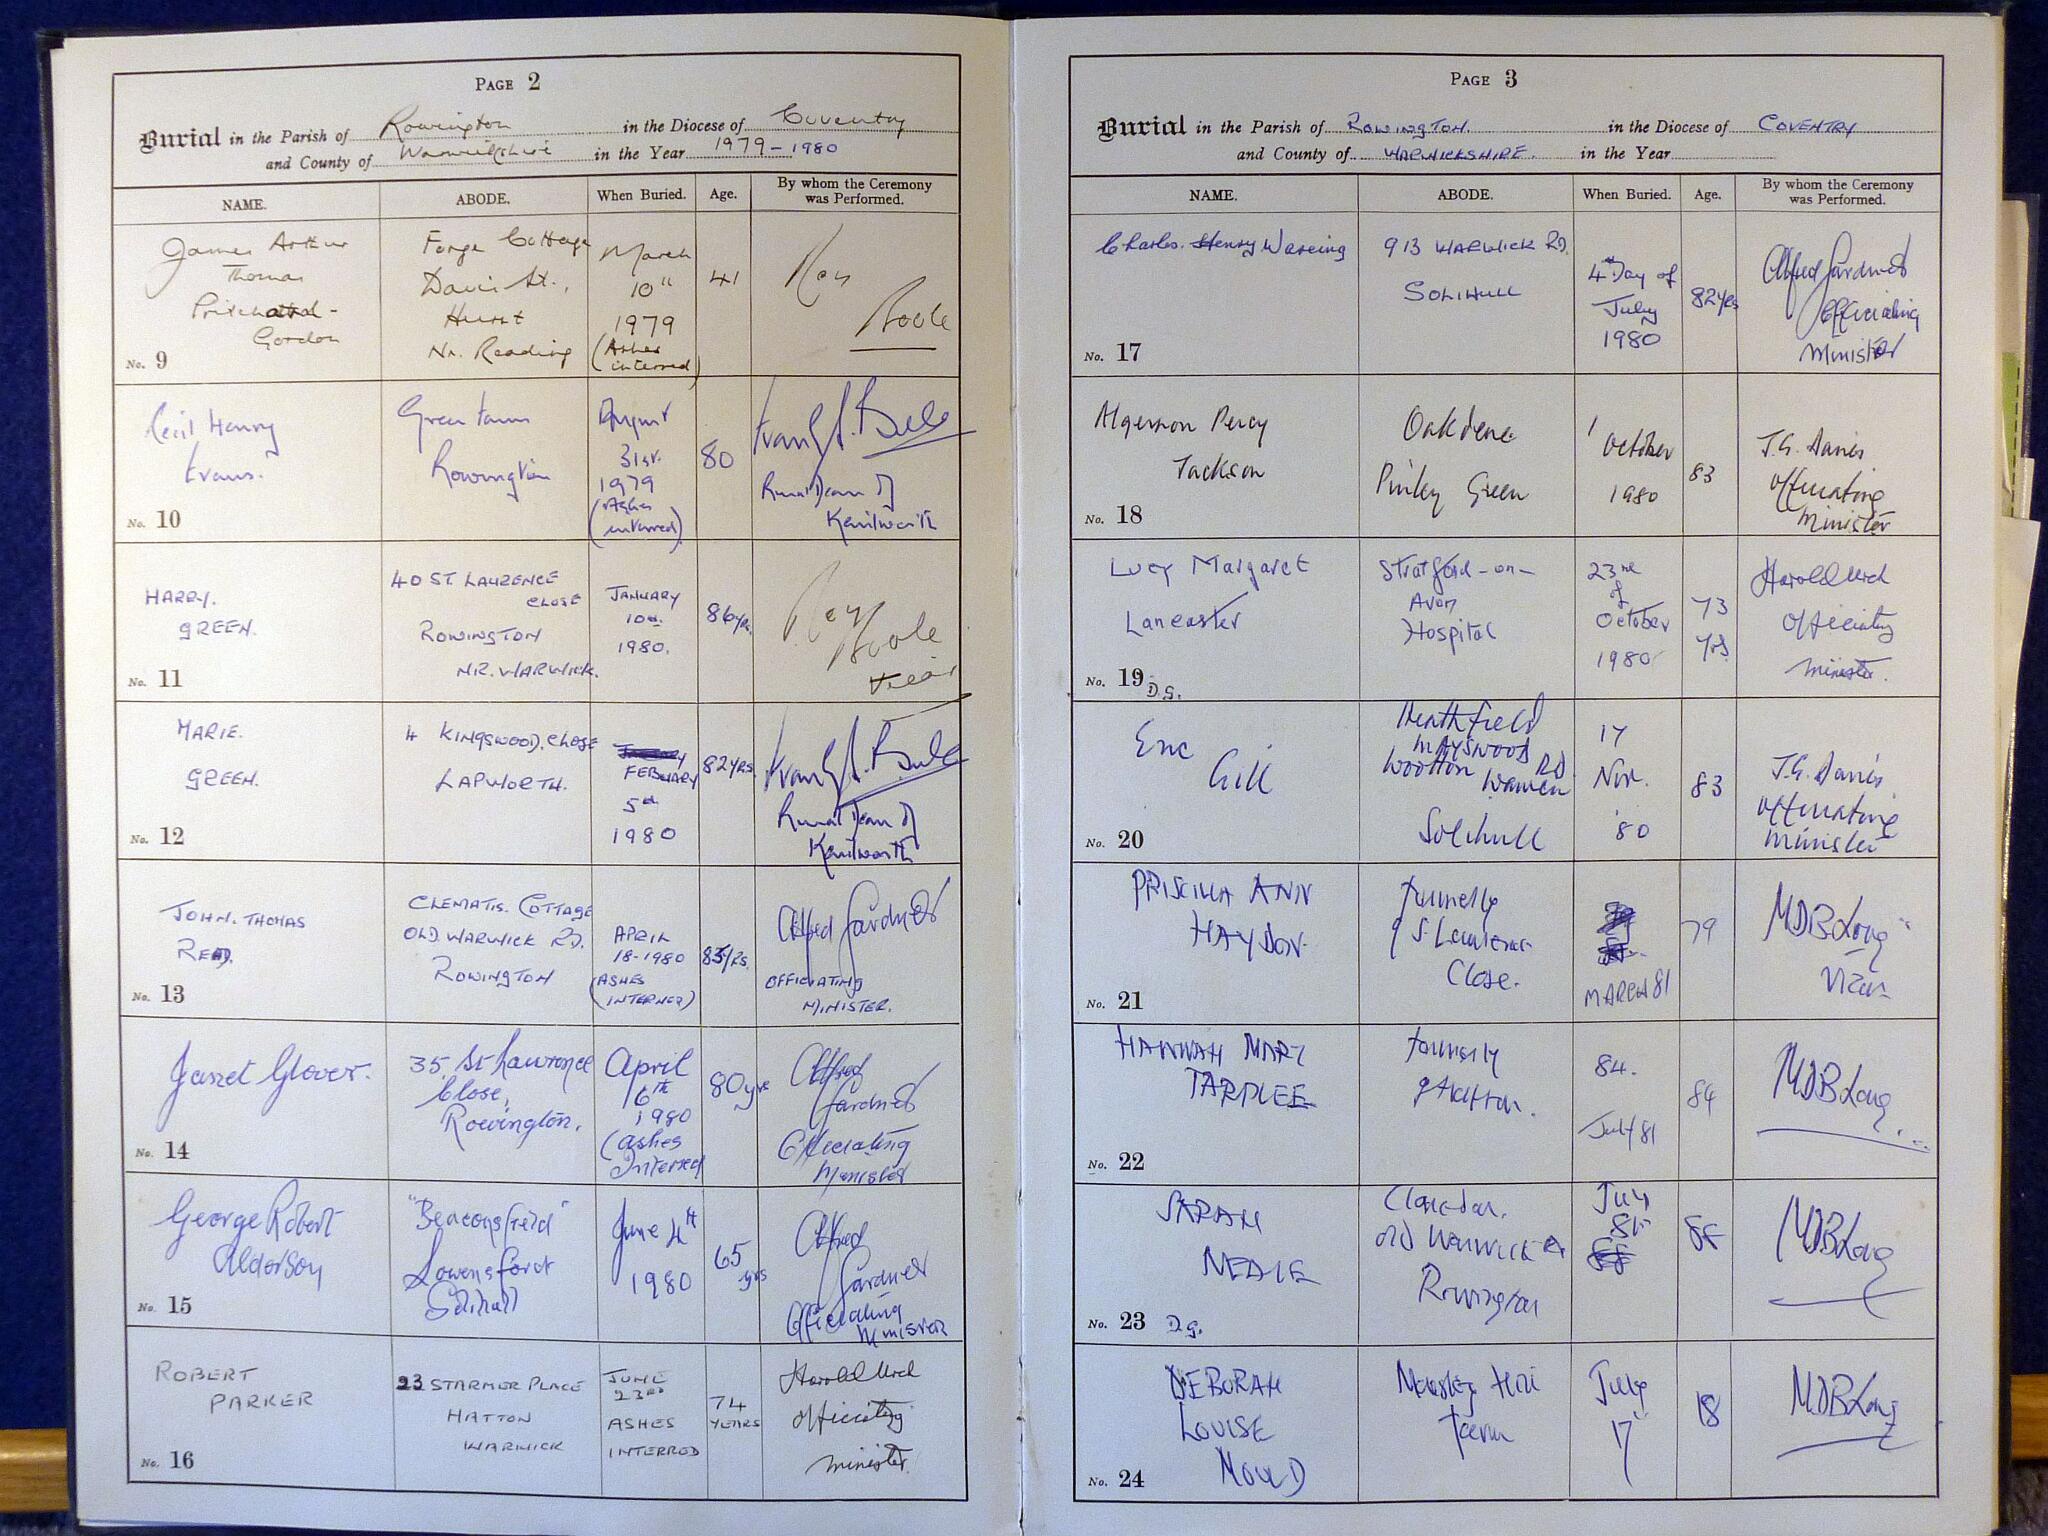 PAGE 2
Burial in the Parish of Rowington in the Diocese of Coventry
and County of Warwickshire in the Year 1979-1980
NAME. ABODE. When Buried. Age. By whom the Ceremony was Performed.
James Arthur
Thomas
Gordon
No. 9
Forge Cottage
Davis St.,
Hurst
Nr. Reading
March
10th
1979
(Ashes
interred)
41
Roy
Poole
Cecil Henry
Evans.
No. 10
Green Farm
Rowington
August
31st.
1979
(Ashes
interred)
80
Rural Dean of
Kenilworth
HARRY.
GREEN.
No. 11
40 ST. LAURENCE
CLOSE
ROWINGTON
NR. WARWICK.
JANUARY
10th.
1980.
86yrs.
Roy
Poole
Vicar
MARIE.
GREEN.
No. 12
4 KINGSWOOD. CLOSE
LAPWORTH.
FEBUARY
5th
1980
82YRS.
Rural Dean of
Kenilworth
JOHN. THOMAS
READ.
No. 13
CLEMATIS. COTTAGE
OLD. WARWICK RD.
ROWINGTON
APRIL
18-1980
(ASHES
INTERNED)
YRS.
Alfred Gardner
OFFICIATING
MINISTER.
Janet Glover.
No. 14
35, St Lawrence
Close,
Rowington.
April
16th
1980
(ashes
Interred
80yrs
Alfred
Gardner
Officiating
Minister
George Robert
Alderson
No. 15
"Beaconsfield"
Solihull
June 4th
1980
65
yrs
Alfred
Gardner
Officiating
Minister
ROBERT
PARKER
No. 16
23 STARMER PLACE
HATTON
WARWICK
JUNE
23RD
ASHES
INTERRED
74
YEARS
Harold
officiating
minister.
PAGE 3
Burial in the Parish of ROWINGTON. in the Diocese of COVENTRY
and County of WARWICKSHIRE. in the Year
NAME. ABODE. When Buried. Age. By whom the Ceremony was Performed.
Charles. Henry Wareing
No. 17
913 WARWICK RD.
SOLIHULL
4th Day of
July
1980
82yrs
Alfred Gardner
Officiating
Minister
Algernon Percy
Jackson
No. 18
Oakdene
Pinley Green
1
October
1980
83
J.G. Davies
officiating
minister
Lucy Margaret
Lancaster
No. 19 D.G.
Stratford-on-
Avon
Hospital
23rd
of
October
1980
73
yrs
Harold
officiating
minister.
Eric
Gill
No. 20
Heathfield
MAYSWOOD RD
Wootton Wawen
Solihull
17
Nov.
'80
83
J.G. Davies
officiating
minister
PRISCILLA ANN
HAYDON.
No. 21
formerly
9 St Laurence
Close.
MARCH 81
79
MDB Long
Vicar
HANNAH MARY
TARPLEE
No. 22
formerly
of Hatton.
84.
July 81
84
MDB Long
SARAH
No. 23 D.G.
Old Warwick Rd
Rowington
July
MDB Long
DEBORAH
LOUISE
MOULD
No. 24
Mousley Hill
Farm
July
17
18
MDB Long